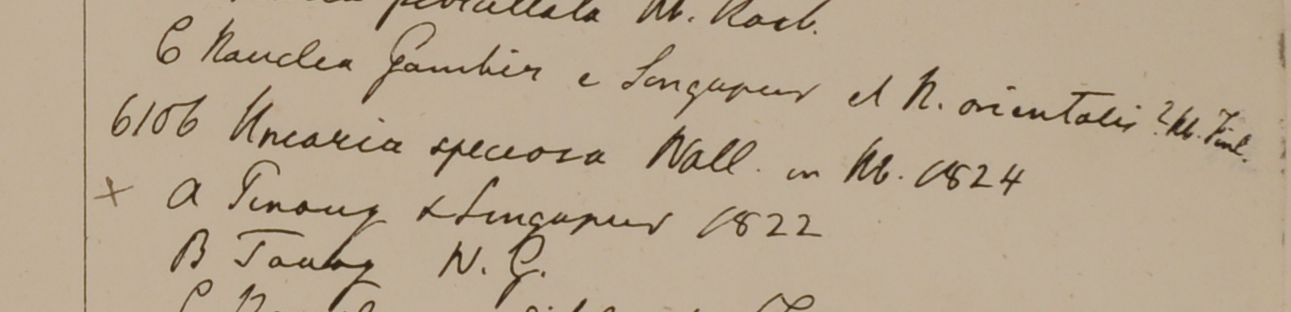 Hb. Roxb.
C Nauclea Gambier e Singapur et N. orientalis? Hb. Finl.
6106 Uncaria speciosa Wall. in Hb. 1824
+ A Penang & Singapur 1822
B Tavoy W. G.